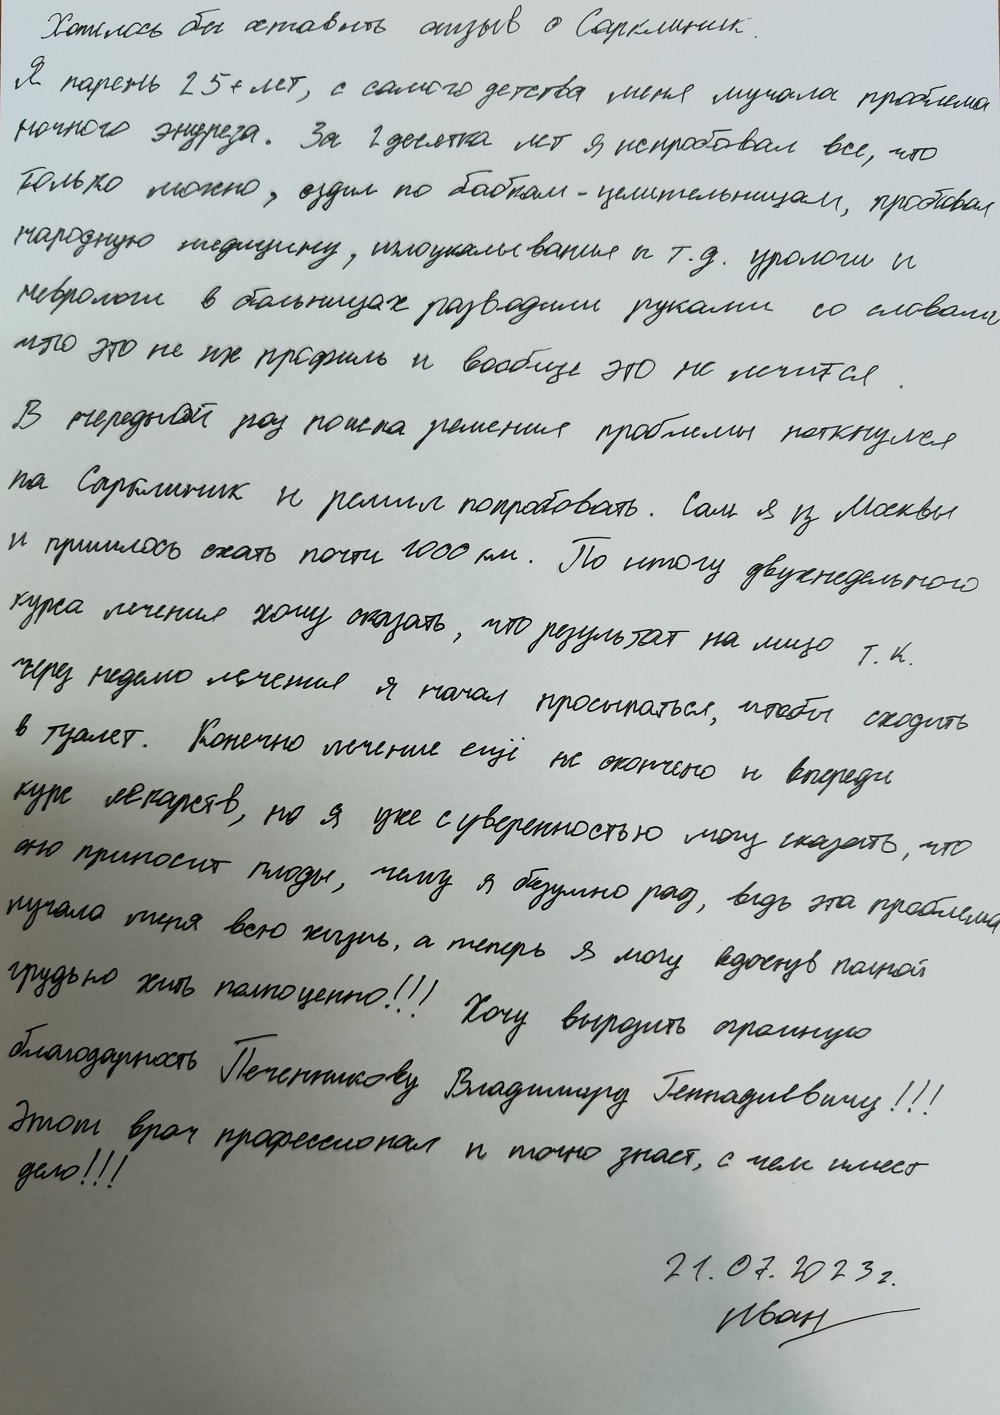 Хотелось бы оставить отзыв о Сарклиник.
Я парень 25+ лет, с самого детства меня мучала проблема
ночного энуреза. За 2 десятка лет я испробовал все, что
только можно, ездил по бабкам-целительницам, пробовал
народную медицину, иглоукалывания и т.д. урологи и
неврологи в больницах разводили руками со словами
что это не их профиль и вообще это не лечится.
В очередной раз поиска решения проблемы наткнулся
на Сарклиник и решил попробовать. Сам я из Москвы
и пришлось ехать почти 1000 км. По итогу двухнедельного
курса лечения хочу сказать, что результат на лицо т.к.
через неделю лечения я начал просыпаться, чтобы сходить
в туалет. Конечно лечение ещё не окончено и впереди
курс лекарств, но я уже с уверенностью могу сказать, что
оно приносит плоды, чему я безумно рад, ведь эта проблема
мучала меня всю жизнь, а теперь я могу вдохнув полной
грудью жить полноценно!!! Хочу выразить огромную
благодарность Печенникову Владимиру Геннадиевичу!!!
Этот врач профессионал и точно знает, с чем имеет
дело!!!
21.07.2023г.
Иван